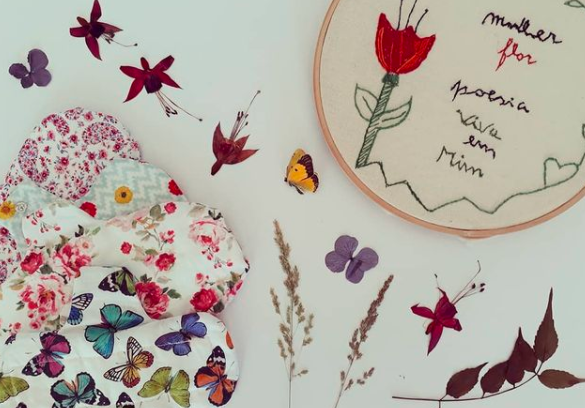 mulher
flor
poesia
viva
em
mim